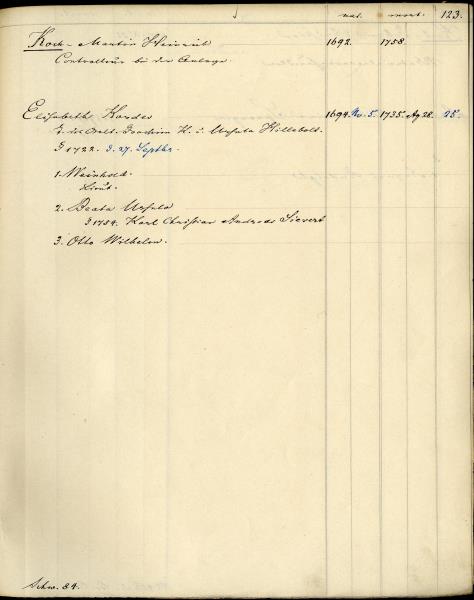 nat. mort. 123.
Koch - Martin Heinrich 1692. 1758.
Controlleur bei der Anlage.
Elisabeth Kordes 1694. No. 5. 1735. Ag 28. 25.
T. d. Aelt. Joachim K. u. Ursula Hillebold.
1722. d. 27. Septbr.
1. Reinhold.
Lieut.
2. Beata Ursula
1754. Karl Christian Andreas Sievert
3. Otto Wilhelm.
Schw. 84.